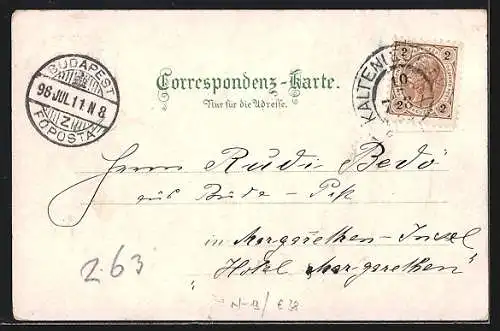 Correspondenz-Karte.
Nur für die Adresse.
2 2
2 2
KALTENL
10
BUDAPEST
96 JUL 11 N 8
Z
FŐPOSTA
Herrn Rudi Bedö
aus Buda-Pest
in Margarethen-Insel
"Hotel Margarethen"
263